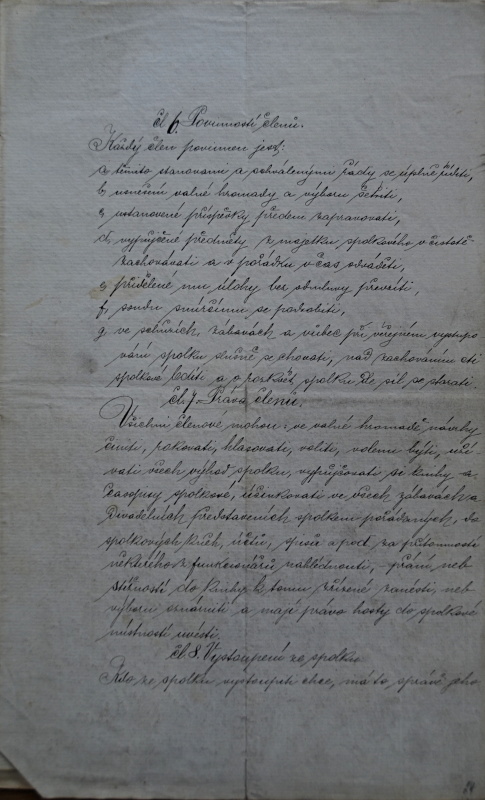 čl 6. Povinnosti členů.
Každý člen povinnen jest:
a, těmito stanovami a schválenými řády se úplně říditi,
b, usnešení valné hromady a výboru šetřiti,
c, ustanovené příspěvky předem zapravovati,
d, vypůjčené předměty z majetku spolkového v čistotě
zachovávati a v pořádku v čas odváděti,
e, přidělené mu úlohy bez obmluvy převzíti,
f, soudu smírčímu se podrobiti,
g, ve schůzích, zábavách a vůbec při veřejném vystupo
vání spolku slušně se chovati, nad zachováním cti
spolkové bdíti a o rozkvět spolku dle sil se starati.
čl. 7. Práva členů.
Všichni členové mohou: ve valné hromadě návrhy
činiti, rokovati, hlasovati, voliti, voleni býti, uží-
vati všech výhod spolku, vypůjčovati si knihy a
časopisy spolkové, účinkovati ve všech zábavách a
divadelních představeních spolkem pořádaných, do
spolkových knih, účtů, spisů a pod. za přítomnosti
některého z funkcionářů nahlédnouti, přání neb
stížnosti do knihy k tomu zřízené zanésti, neb
výboru oznámiti a mají právo hosty do spolkové
místnosti uvésti.
čl. 8. Vystoupení ze spolku
Kdo ze spolku vystoupiti chce, má to správě jeho